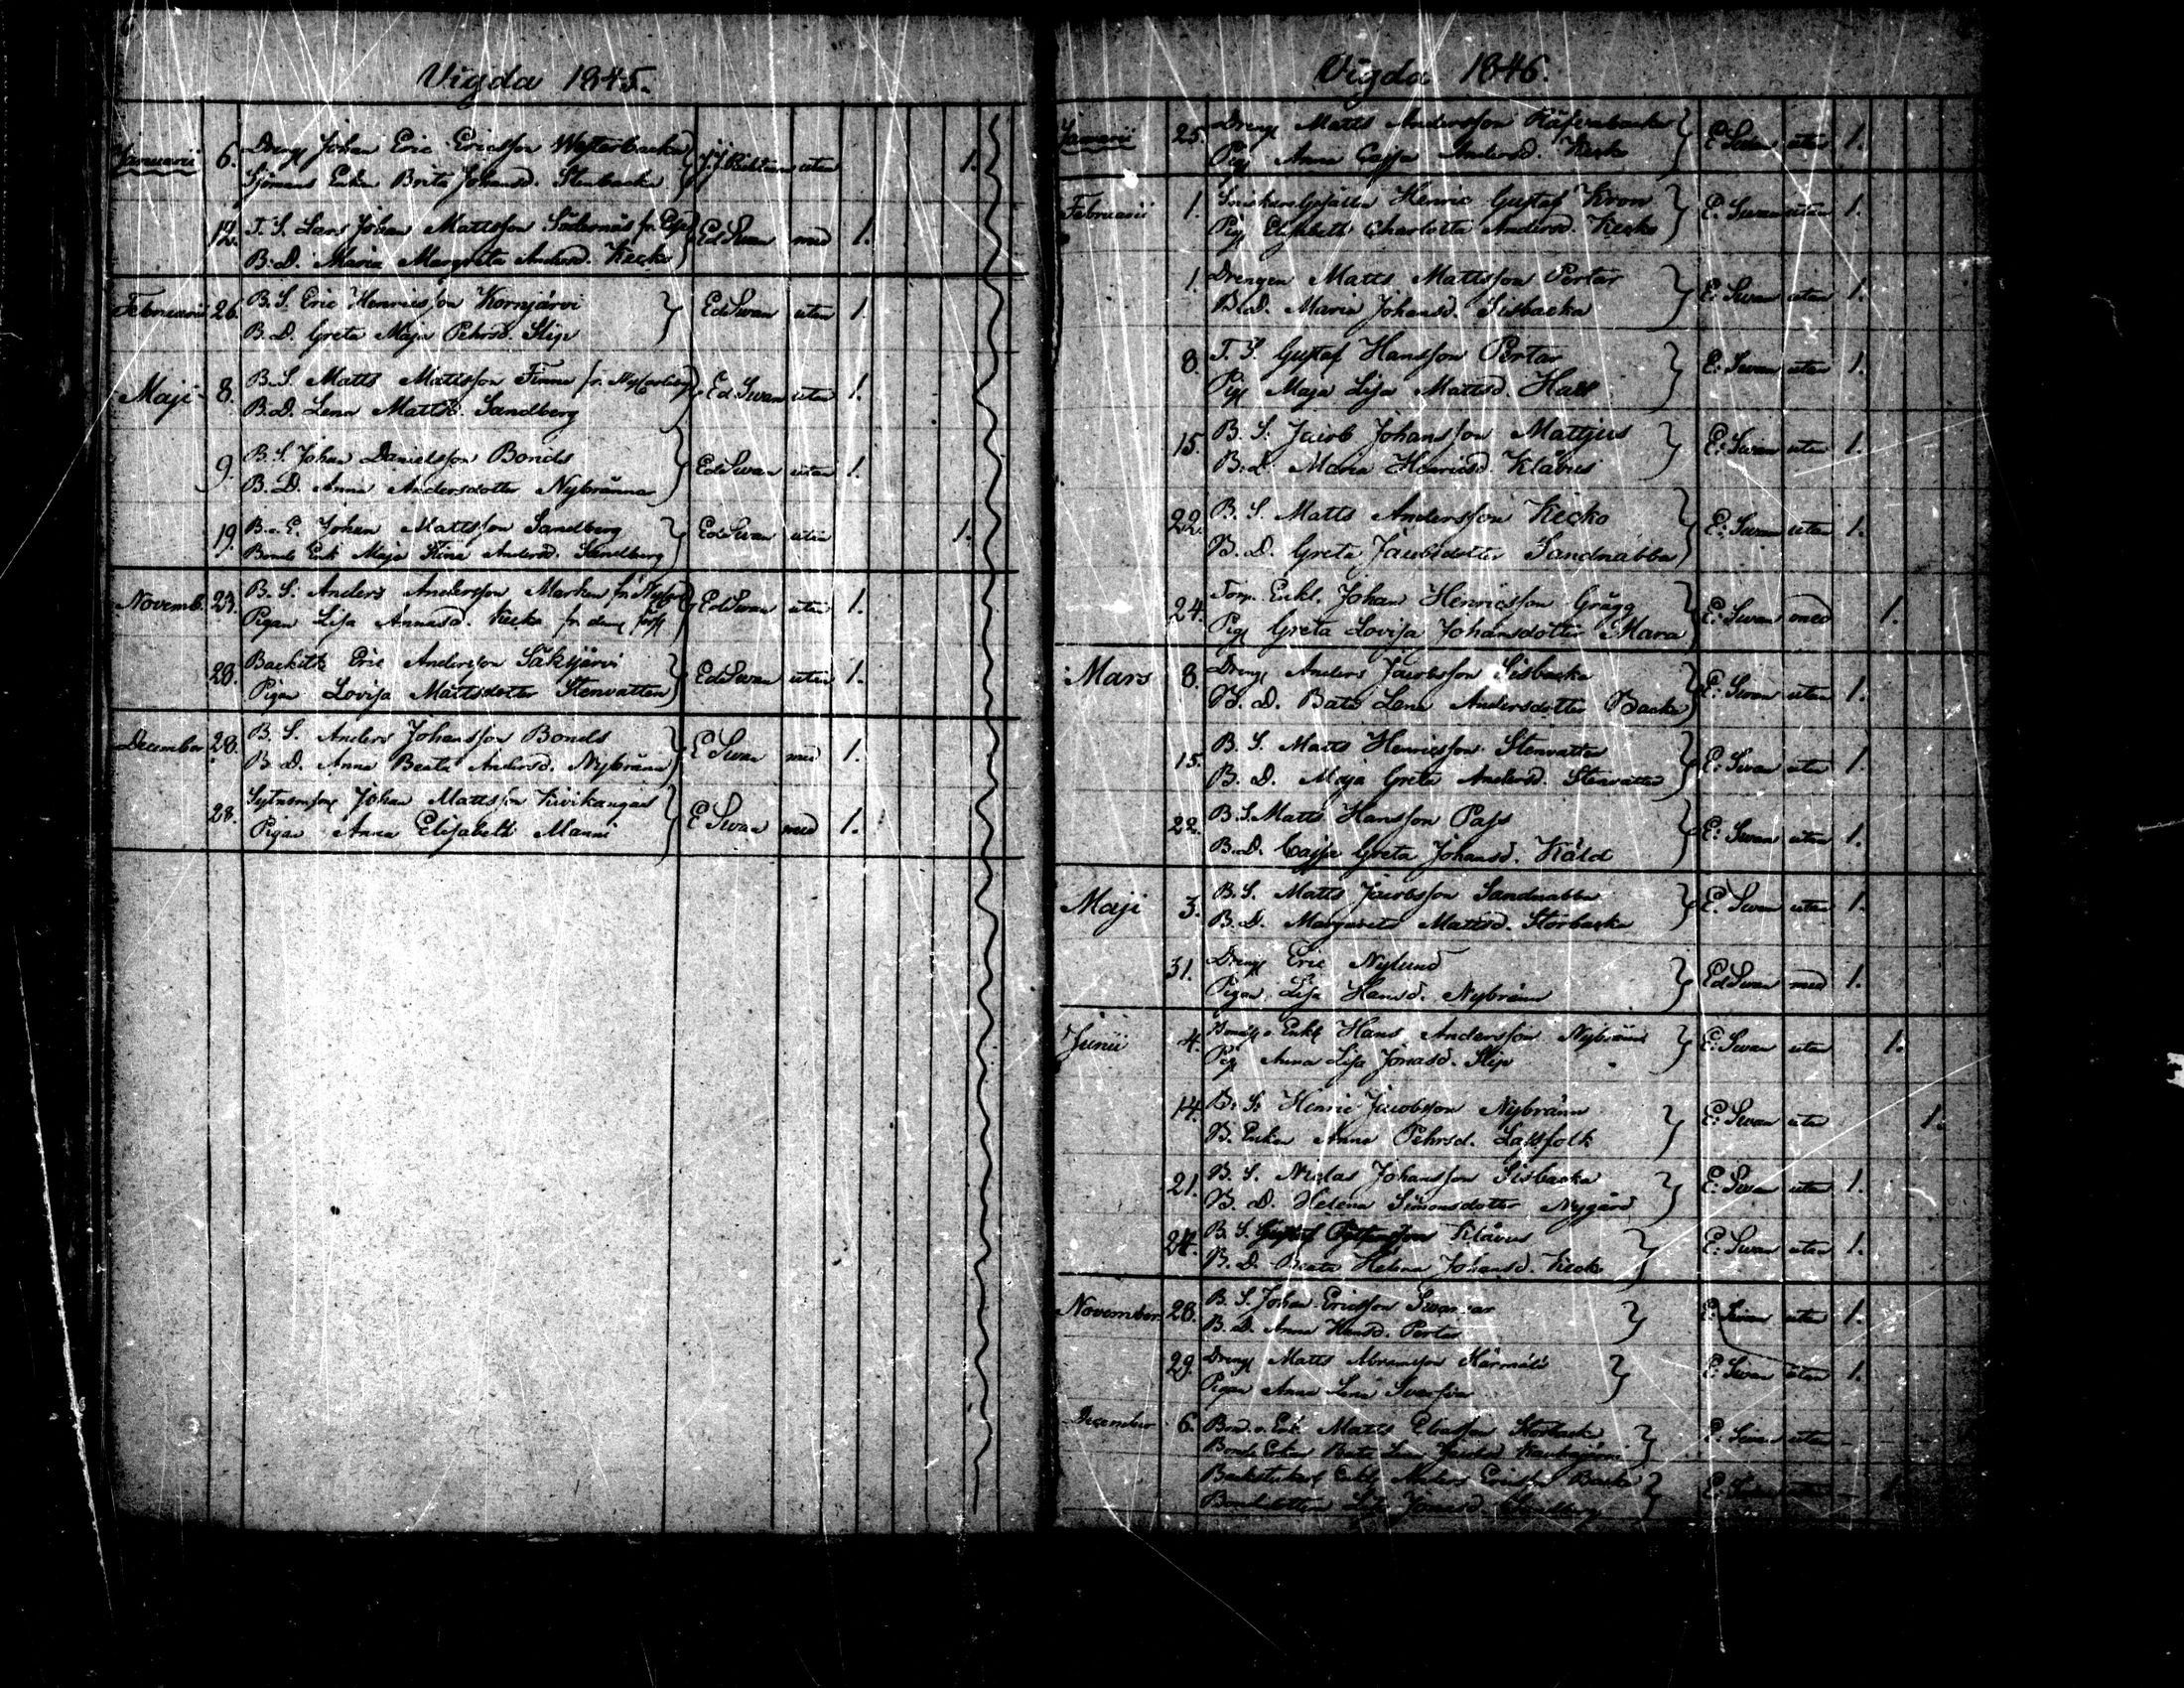 Vigda 1845.
Januarii 6. Dreng Johan Eric Ericsson Westerbacka utan 1.
Sjömans Enkan Brita Johansd. Stenbacka
12. T. S. Lars Johan Mattsson Södernäs fr. Ed Swan med 1.
B. D. Maria Margreta Andersd. Kecko
Februarii 26. B. S. Eric Henricsson Kornjärvi Ed Swan utan 1.
B. D. Greta Maja Pehrsd. Slip
Maji 8. B. S. Matts Mattsson Finne fr. Ed Swan utan 1.
B. D. Lena Mattsd. Sandberg
9. B. S. Johan Danielsson Bonds Ed Swan utan 1.
B. D. Anna Andersdotter Nybränna
19. B. E. Johan Mattsson Sandberg Ed Swan utan 1.
Bonde Enk. Maja Stina Andersd. Sandberg
Novemb. 23. B. S. Anders Andersson Marken fr. Ed Swan utan 1.
Pigan Lisa Annasd. Kecko fr.
28. Eric Andersson Säksjärvi Ed Swan utan 1.
Pigan Lovisa Mattsdotter Stenvatten
December 28. B. S. Anders Johansson Bonds E Swan med 1.
B. D. Anna Beata Andersd. Nybränn
28. Johan Mattsson Kivikangas E Swan med 1.
Pigan Anna Elisabeth Manni
Vigda 1846.
Januarii 25. Dreng Matts Andersson Räfvabacka E Swan utan 1.
Pig Anna Cajsa Andersd. Kecko
Februarii 1. Snickare Gesällen Henric Gustaf Kron E. Swan utan 1.
Pig Elisabeth Charlotta Andersd. Kecko
1. Drengen Matts Mattsson Pertar E. Swan utan 1.
B. D. Maria Johansd. Sisbacka
8. T. S. Gustaf Hansson Pertar E. Swan utan 1.
Pig Maja Lisa Mattsd. Hall
15. B. S. Jacob Johansson Mattjus E: Swan utan 1.
B. D. Maria Henricsd. Klåvus
22. B. S. Matts Andersson Kecko E: Swan utan 1.
B. D. Greta Jacobsdotter Sandnabba
24. Torp. Enkl. Johan Henricsson Grägg E: Swan med 1.
Pig Greta Lovisa Johansdotter Mara
Mars 8. Dreng Anders Jacobsson Sisbacka E: Swan utan 1.
B. D. Beata Lena Andersdotter Backa
15. B. S. Matts Henricsson Stenvatten E: Swan utan 1.
B. D. Maja Greta Andersd. Stenvatten
22. B. S. Matts Hansson Pass E: Swan utan 1.
B. D. Cajsa Greta Johansd. Käld
Maji 3. B. S. Matts Jacobsson Sandnabba E. Swan utan 1.
B. D. Margareta Mattsd. Storbacka
31. Dreng Eric Nylund Ed Swan med 1.
Pigan Lisa Hansd. Nybränn
Junii 4. Enkl. Hans Andersson Nybränn E: Swan utan 1.
Pig Anna Lisa Jonasd. Slip
14. B. S. Henric Jacobsson Nybränn E: Swan utan 1.
B. Enkan Anna Pehrsd. Lassfolk
21. B. S. Niclas Johansson Sisbacka E: Swan utan 1.
B. D. Helena Simonsdotter Nygård
24. B. S. Gustaf Klåvus E: Swan utan 1.
B. D. Beata Helena Johansd. Kecko
November 28. B. S. Johan Ericsson E: Swan utan 1.
B. D. Anna Hansd. Pertar
29. Dreng Matts Abramsson E: Swan utan 1.
Pigan Anna Lena
December 6. Bond. o. Enk. Matts Storbacka E. Swan utan
Bonde Enkan Beata Lena
Enkl. Anders Ericsson Backa 1.
Bondedottern Lisa Jonasd. Sandberg